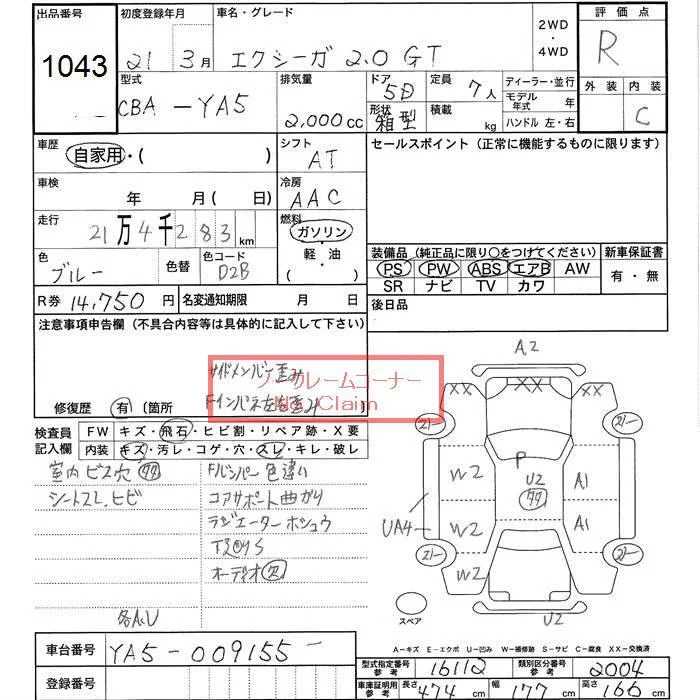 出品番号 初度登録年月 車名・グレード 2WD・4WD 評価点
1043 21 3月 エクシーガ 2.0 GT R
型式 排気量 ドア 5D 定員 7人 ディーラー・並行 外装 内装
CBA-YA5 2,000cc 形状 箱型 積載 kg モデル年式 年 C
ハンドル 左・右
車歴 自家用・( ) シフト AT セールスポイント(正常に機能するものに限ります)
車検 年 月(日) 冷房 AAC
走行 21万4千283km 燃料 ガソリン・軽・油 ( )
色 ブルー 色替 色コード D2B
装備品(純正品に限り○をつけてください) 新車保証書
PS PW ABS エアB AW 有・無
SR ナビ TV カワ
R券 14,750円 名変通知期限 月 日 後日品
注意事項申告欄(不具合内容等は具体的に記入して下さい)
サイドメンバー歪み
ノークレームコーナー
No Claim
修復歴 有 〔箇所 〕
検査員記入欄 FW キズ・飛石・ヒビ割・リペア跡・X要
内装 キズ・汚レ・コゲ・穴・スレ・キレ・破レ
室内ビス穴 Fバンパー色違い
シートスレ、ヒビ コアサポート曲がり
ラジエーターホショウ
オーディオ欠
各A.U
A2
XX XX XX
21- 21-
W2 P U2 A1
UA4 W2 A1
21- W2 21-
スペア U2
A-キズ E-エクボ U-凹み W-補修跡 S-サビ C-腐食 XX-交換済
車台番号 YA5-009155-
登録番号
型式指定番号 参考 16112 類別区分番号 参考 2004
車庫証明用 参考 長さ 474cm 幅 177cm 高さ 166cm